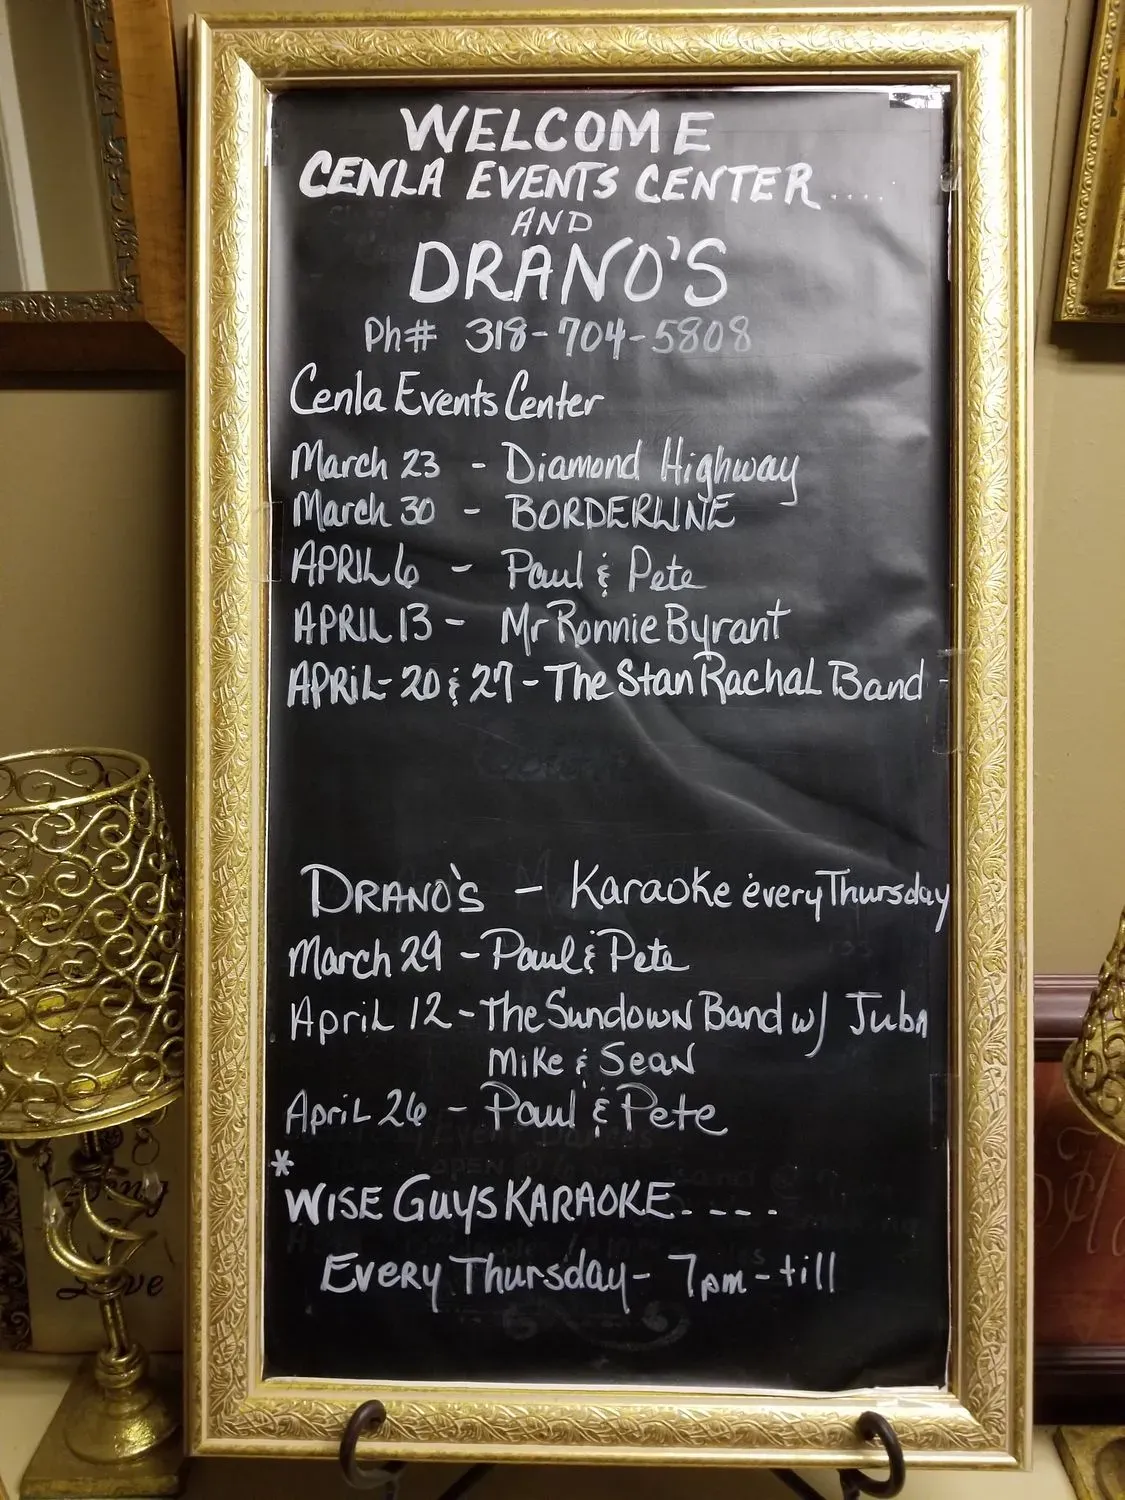 WELCOME
CENLA EVENTS CENTER....
AND
DRANO'S
Ph# 318-704-5808
Cenla Events Center
March 23 - Diamond Highway
March 30 - BORDERLINE
APRIL 6 - Paul & Pete
APRIL 13 - Mr Ronnie Byrant
APRiL- 20 & 27 - The Stan Rachal Band -
DRANO'S - Karaoke every Thursday
March 29 - Paul & Pete
April 12 - The Sundown Band w/ Juba
Mike & Sean
April 26 - Paul & Pete
*
WISE GUYS KARAOKE----
Every Thursday - 7pm - till
Love